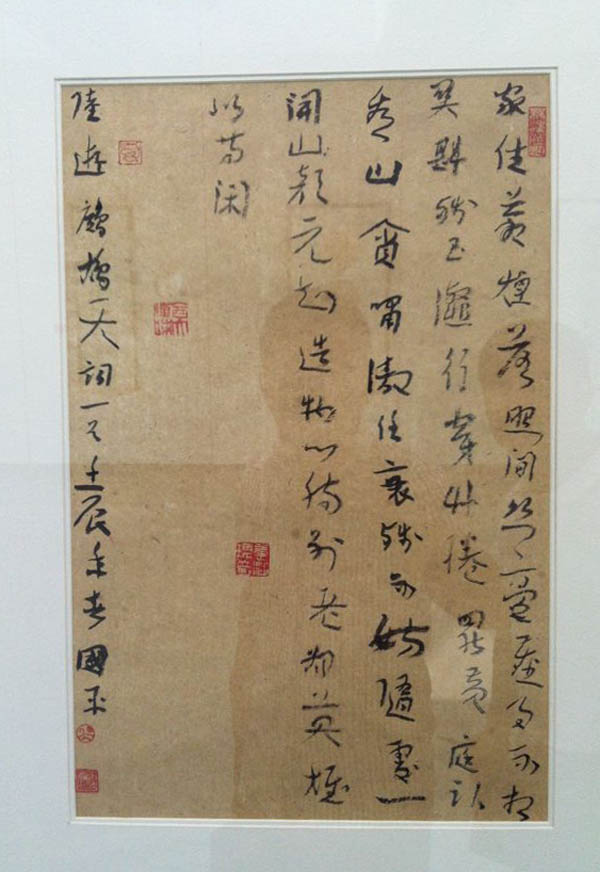 家住蒼煙落照間絲毫塵事不相
關斟殘玉瀣行穿竹捲罷黃庭臥
看山貪嘯傲任衰殘不妨隨處一
開山顏元知造物心腸別老卻英雄
似等閑
陸遊鷓鴣天詞一首壬辰年春國平